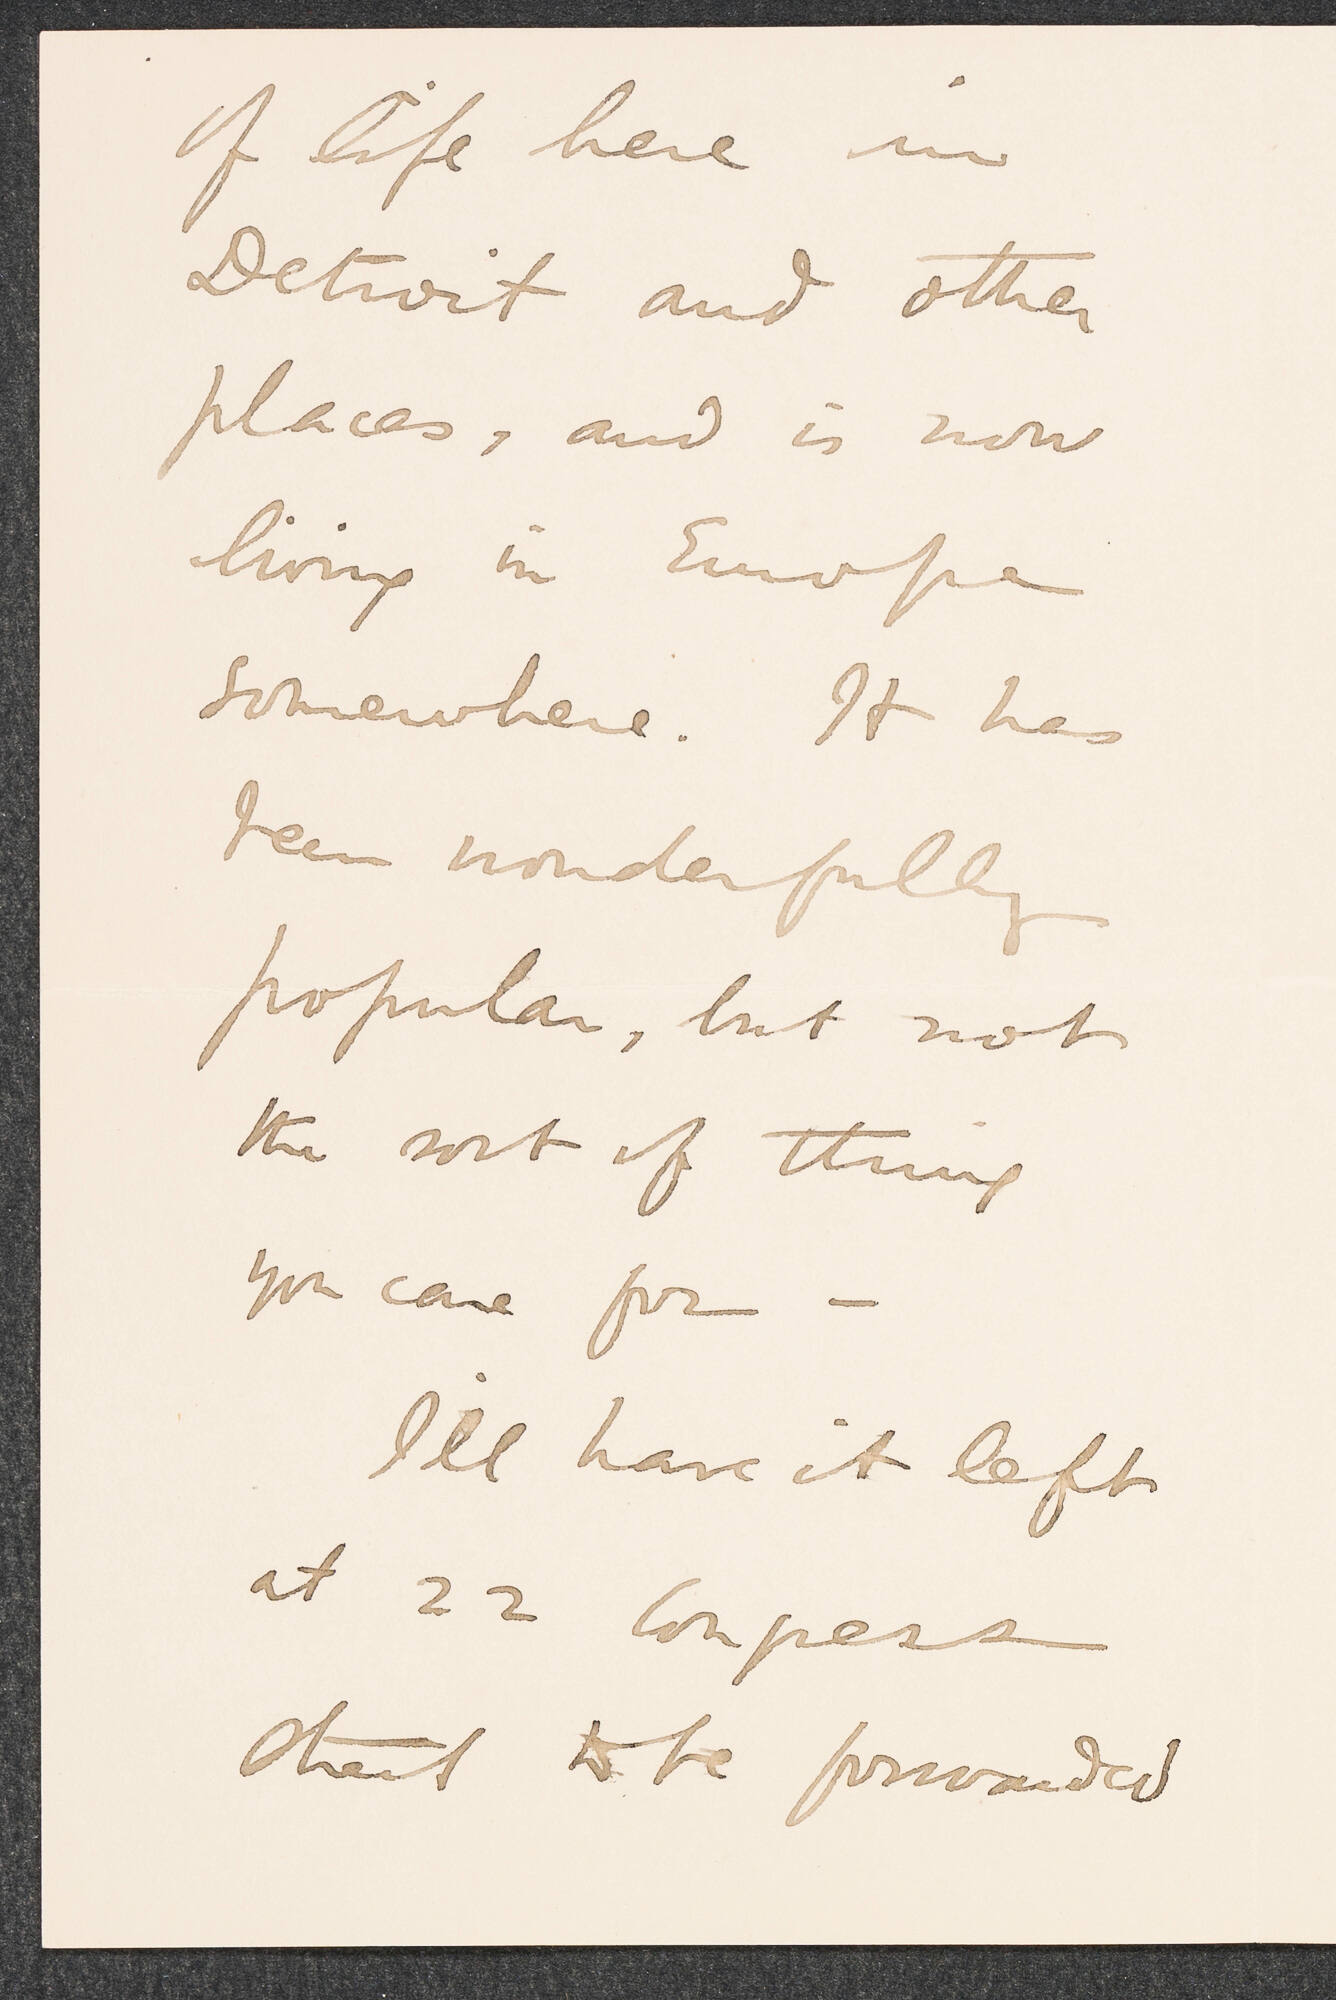 of life here in
Detroit and other
places, and is now
living in Europe
somewhere. It has
been wonderfully
popular, but not
the sort of thing
you care for -
I'll have it left
at 22 Congress
Street to be forwarded